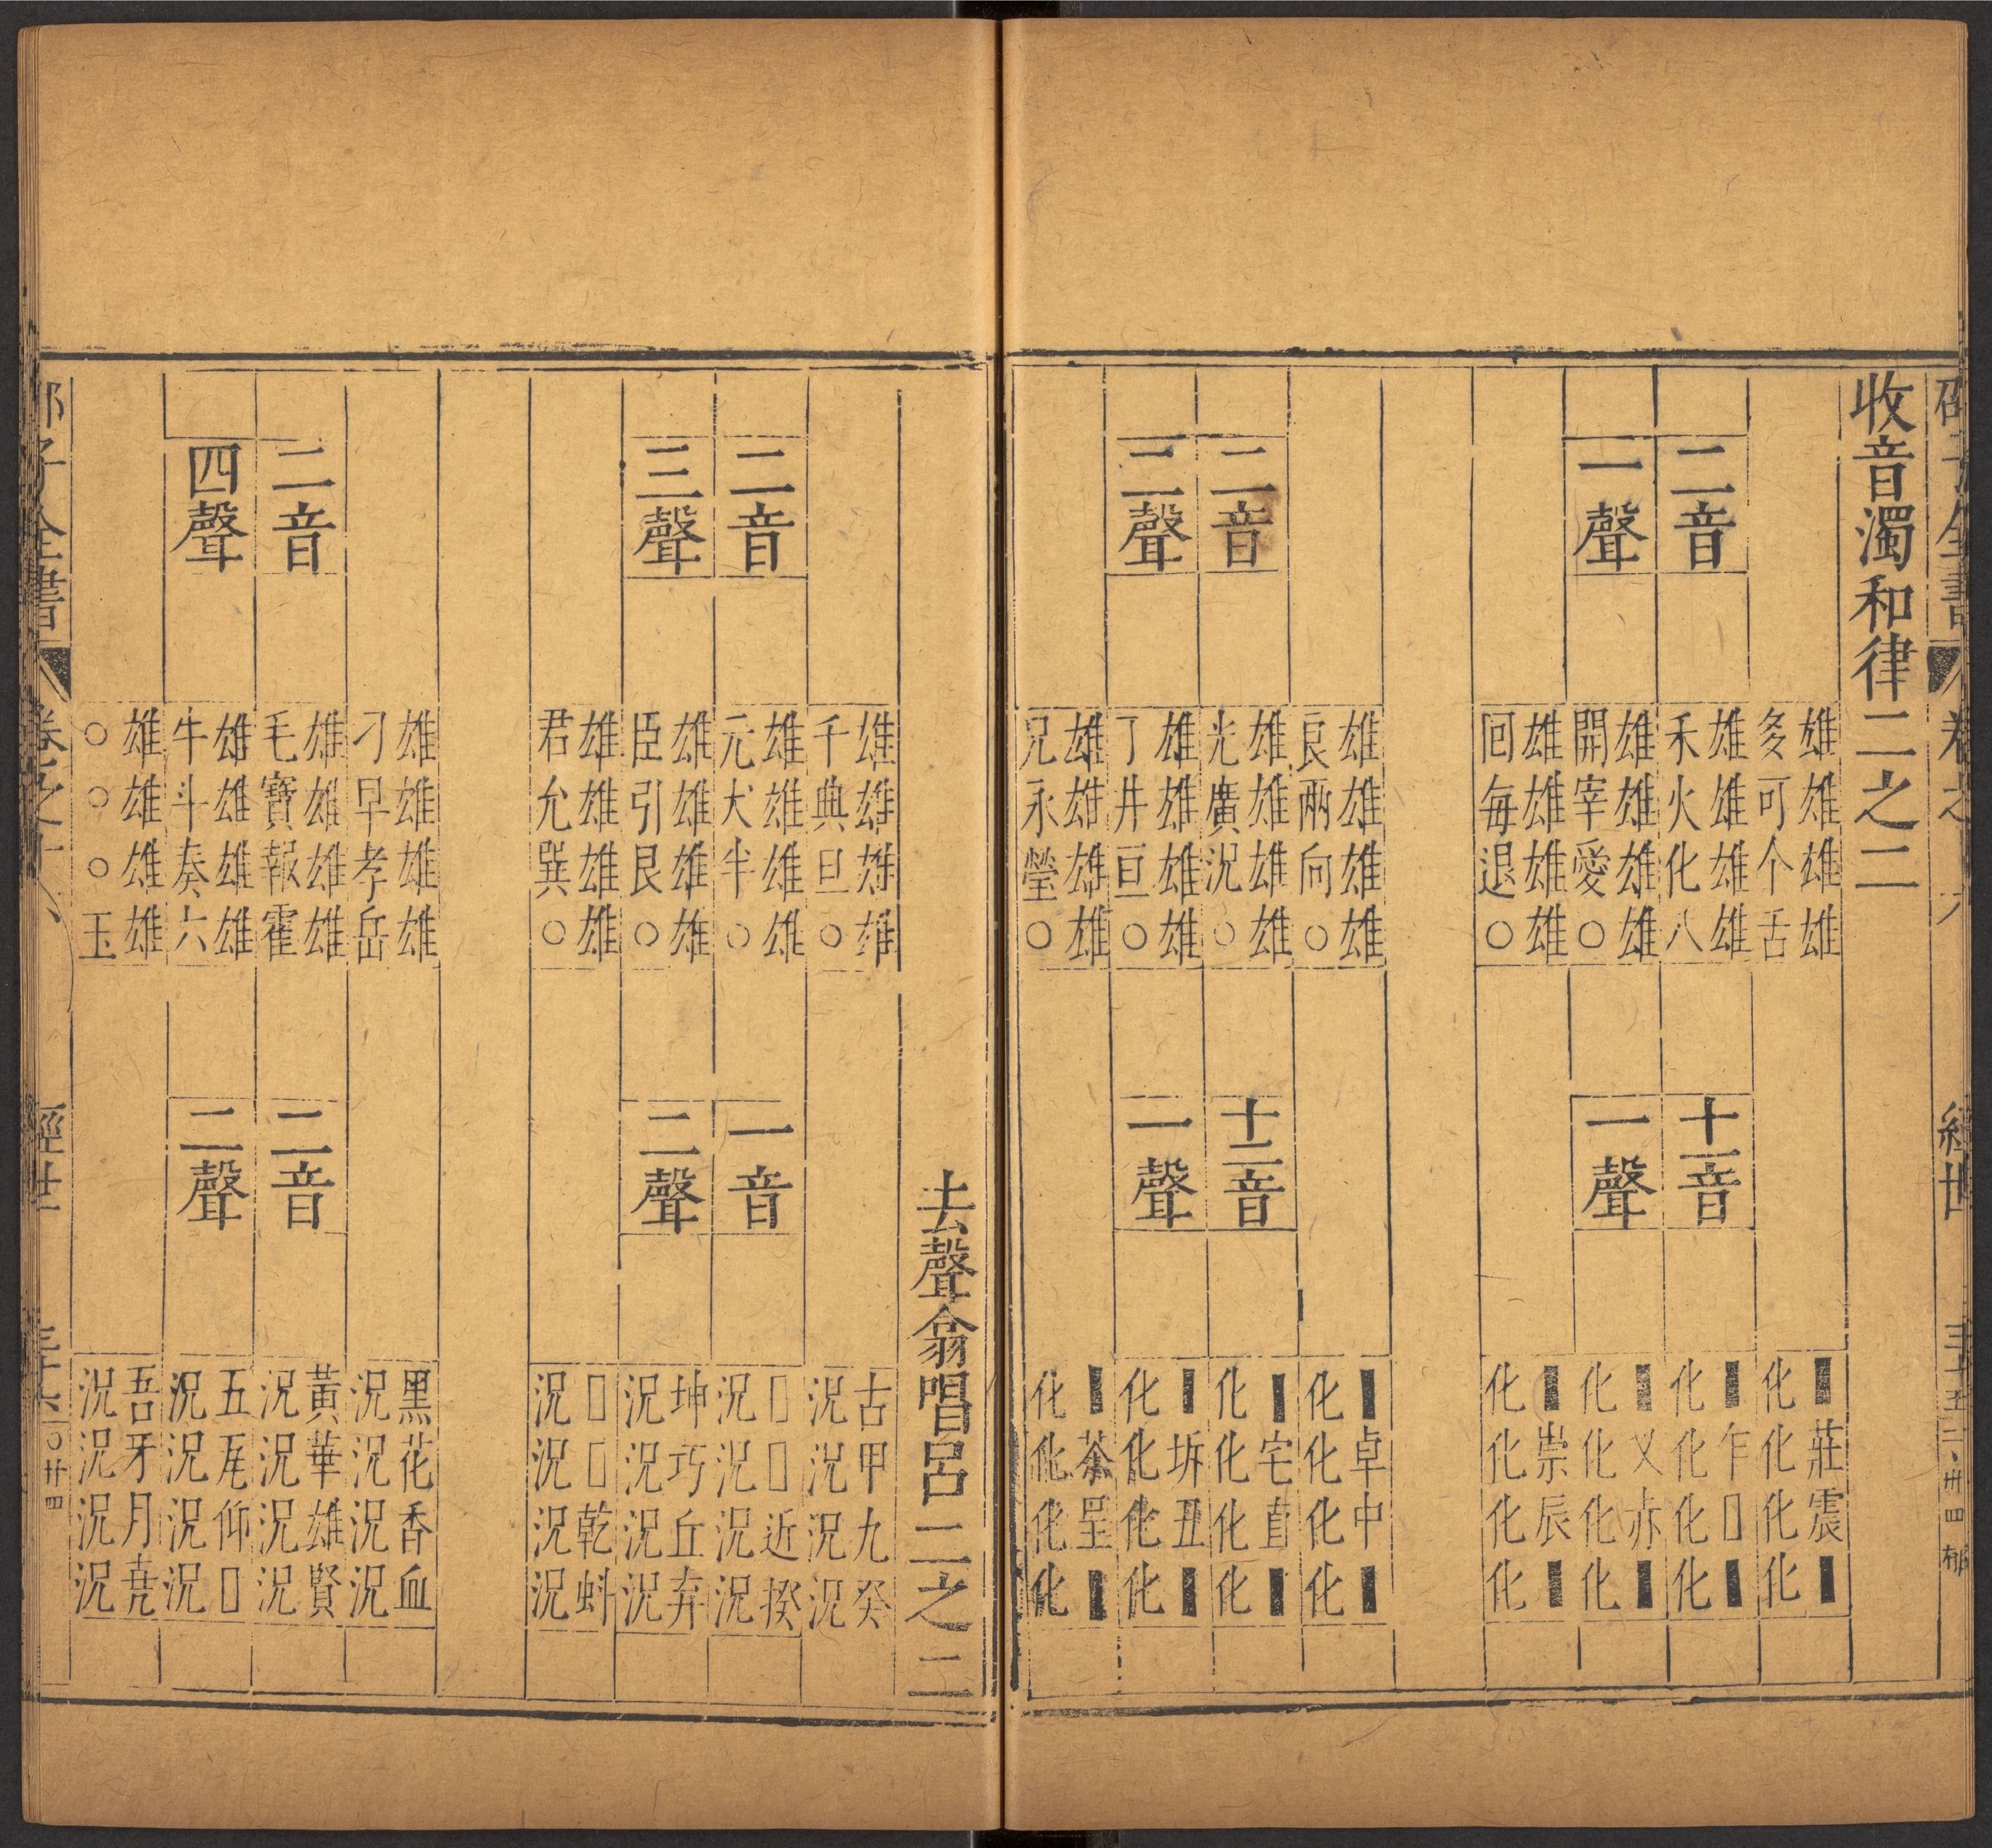 收音濁和律二之二
二音
一聲
雄雄雄雄
多可个舌
雄雄雄雄
禾火化八
雄雄雄雄
開宰愛○
雄雄雄雄
回每退○
十一音
一聲
▮莊震▮
化化化化
▮乍□▮
化化化化
▮乂赤▮
化化化化
▮崇辰▮
化化化化
二音
二聲
雄雄雄雄
良兩向○
雄雄雄雄
光廣況○
雄雄雄雄
丁井亘○
雄雄雄雄
兄永瑩○
十二音
一聲
▮卓中▮
化化化化
▮宅直▮
化化化化
▮坼丑▮
化化化化
▮茶呈▮
化化化化
去聲翕唱呂二之二
二音
三聲
雄雄雄雄
千典旦○
雄雄雄雄
元犬半○
雄雄雄雄
臣引艮○
雄雄雄雄
君允巽○
一音
二聲
古甲九癸
況況況況
□□近揆
況況況況
坤巧丘弃
況況況況
□□乾蚪
況況況況
二音
四聲
雄雄雄雄
刁早孝岳
雄雄雄雄
毛寶報霍
雄雄雄雄
牛斗奏六
雄雄雄雄
○○○玉
二音
二聲
黑花香血
況況況況
黃華雄賢
況況況況
五瓦仰□
況況況況
吾牙月堯
況況況況